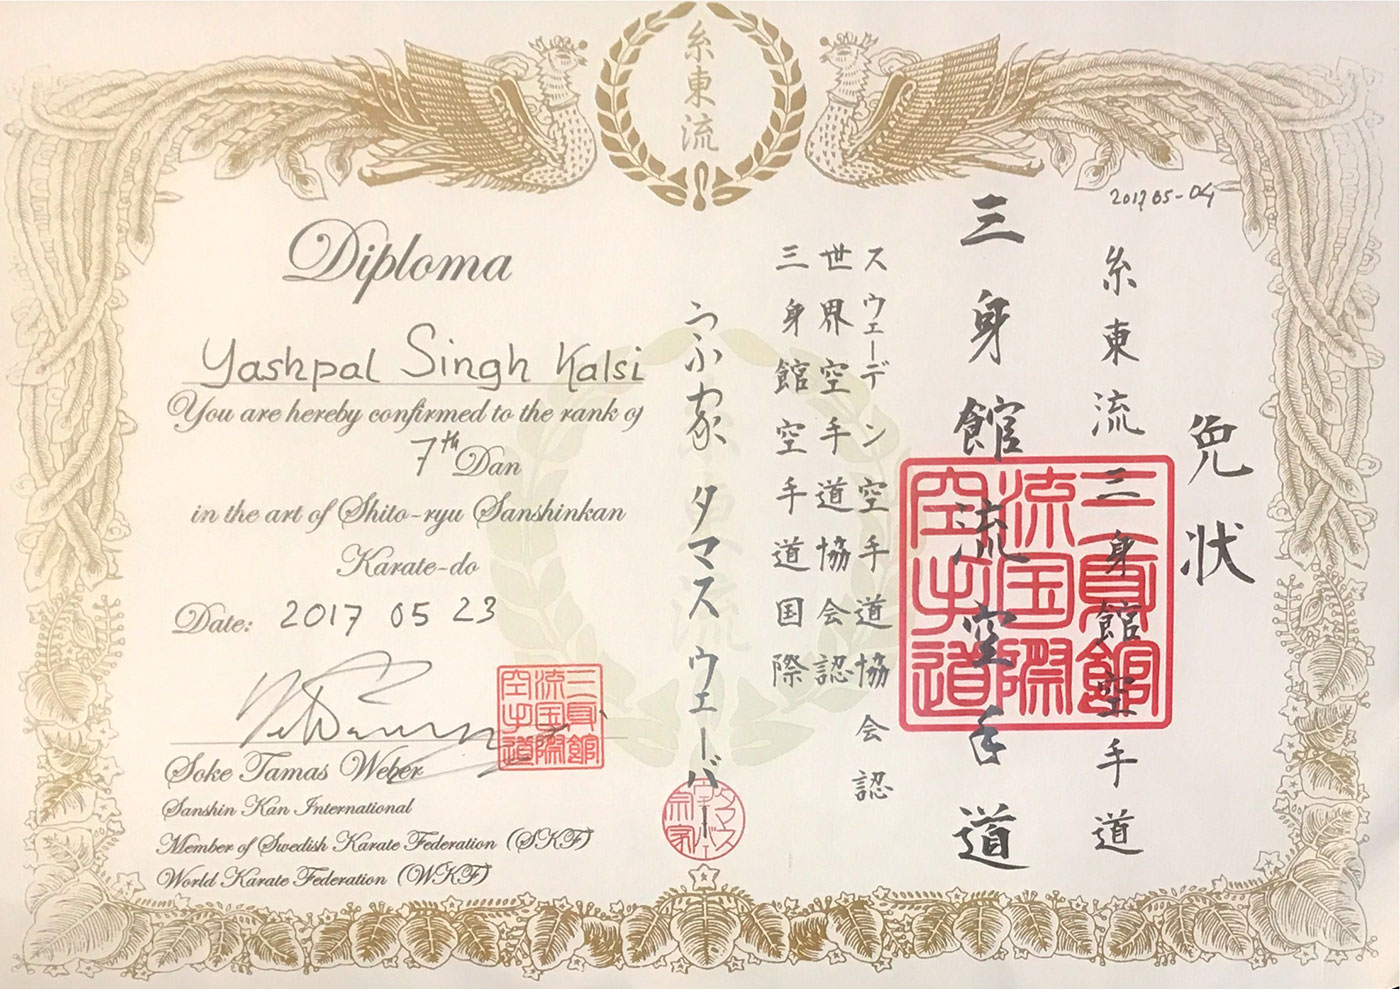 糸東流
2017 05-04
免状
糸東流三身館空手道
三身館流空手道
スウェーデン空手道協会認
世界空手道協会認
三身館空手道国際
宗家 タマス ウェーバー
Diploma
Yashpal Singh Kalsi
You are hereby confirmed to the rank of
7th Dan
in the art of Shito-ryu Sanshinkan
Karate-do
Date: 2017 05 23
三身館
流国際
空手道
Soke Tamas Weber
Sanshin Kan International
Member of Swedish Karate Federation (SKF)
World Karate Federation (WKF)
三身館
流国際
空手道